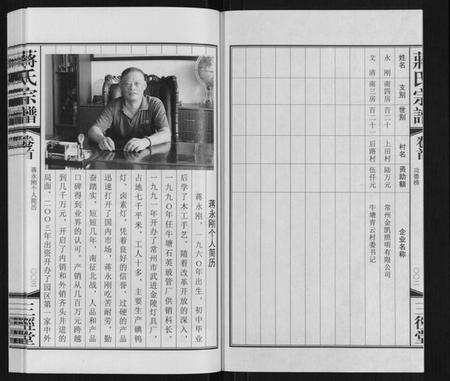 蔣氏宗譜
卷首
功德榜
三徑堂
姓名 支别 世别 村名 资助额 企业名称
永刚 南四房 百二十 上田村 陆万元 常州金凯照明有限公司
文清 南三房 百二十一 后路村 伍仟元 牛塘青云村委书记
蒋永刚个人简历
蒋永刚，一九六〇年出生，初中毕业
后学了木工手艺，随着改革开放的深入，
一九九〇年任牛塘石英玻管厂供销科长，
一九九一年开办了常州市武进金陵灯具厂，
占地七千平米，工人十多，主要生产碘钨
灯，卤素灯，凭着良好的信誉，过硬的产品
迅速打开了国内市场，蒋永刚吃苦耐劳，勤
奋踏实，短短几年，南征北战，人品和产品
口碑得到业界的认可。产销从几百万元跨越
到几千万元，开启了内销和外销齐头并进的
局面，二〇〇三年出资开办了园区第一家中外
蔣氏宗譜
卷首
蒋永刚个人简历
三徑堂